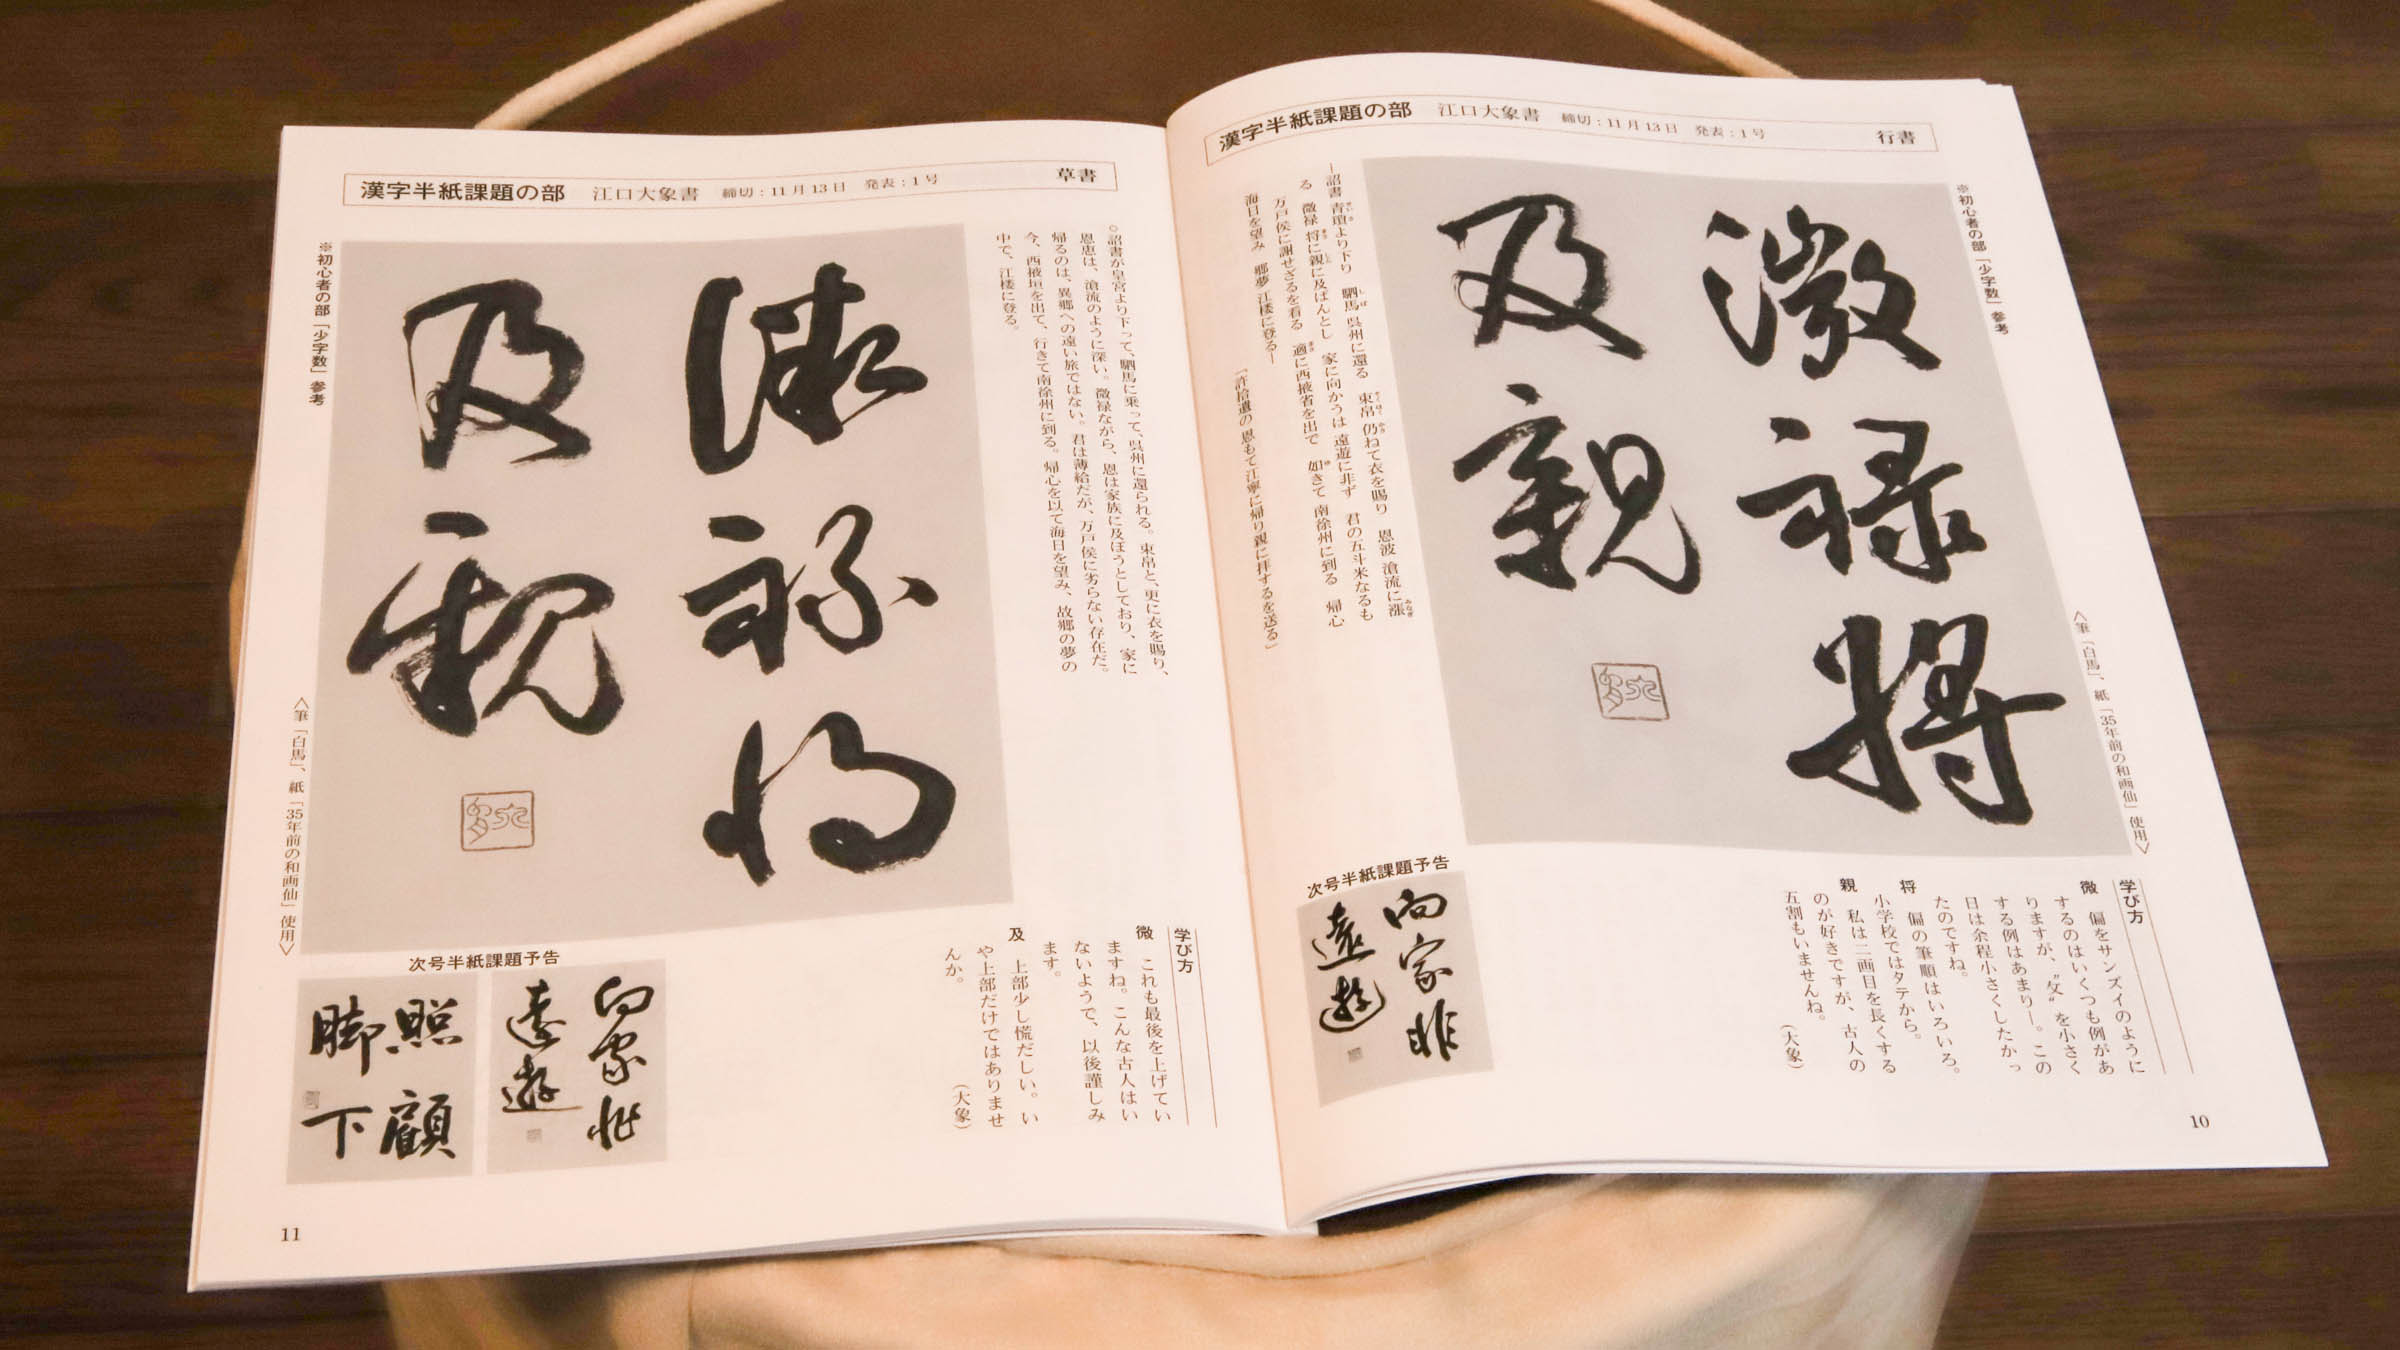 漢字半紙課題の部　江口大象書　締切：11月13日　発表：1号　行書
※初心者の部「少字数」参考
微禄将
及親
〈筆「白馬」、紙「35年前の和画仙」使用〉
―詔書青瑣より下り　駟馬呉州に還る　束帛仍ねて衣を賜り　恩波滄流に漲
る　微禄将に親に及ばんとし　家に向かうは遠遊に非ず　君の五斗米なるも
万戸侯に謝せざるを看る　適に西掖省を出で　如きて南徐州に到る　帰心
海日を望み　郷夢江楼に登る―
「許拾遺の恩もて江寧に帰り親に拝するを送る」
学び方
微　偏をサンズイのように
するのはいくつも例があ
りますが、〝攵〟を小さく
する例はあまり―。この
日は余程小さくしたかっ
たのですね。
将　偏の筆順はいろいろ。
小学校ではタテから。
親　私は二画目を長くする
のが好きですが、古人の
五割もいませんね。
（大象）
次号半紙課題予告
向家非
遠遊
10
漢字半紙課題の部　江口大象書　締切：11月13日　発表：1号　草書
○詔書が皇宮より下って、駟馬に乗って、呉州に還られる。束帛と、更に衣を賜り、
恩恵は、滄流のように深い。微禄ながら、恩は家族に及ぼうとしており、家に
帰るのは、異郷への遠い旅ではない。君は薄給だが、万戸侯に劣らない存在だ。
今、西掖垣を出て、行きて南徐州に到る。帰心を以て海日を望み、故郷の夢の
中で、江楼に登る。
微禄将
及親
※初心者の部「少字数」参考
〈筆「白馬」、紙「35年前の和画仙」使用〉
学び方
微　これも最後を上げてい
ますね。こんな古人はい
ないようで、以後謹しみ
ます。
及　上部少し慌だしい。い
や上部だけではありませ
んか。
（大象）
次号半紙課題予告
向家非
遠遊
照顧
脚下
11